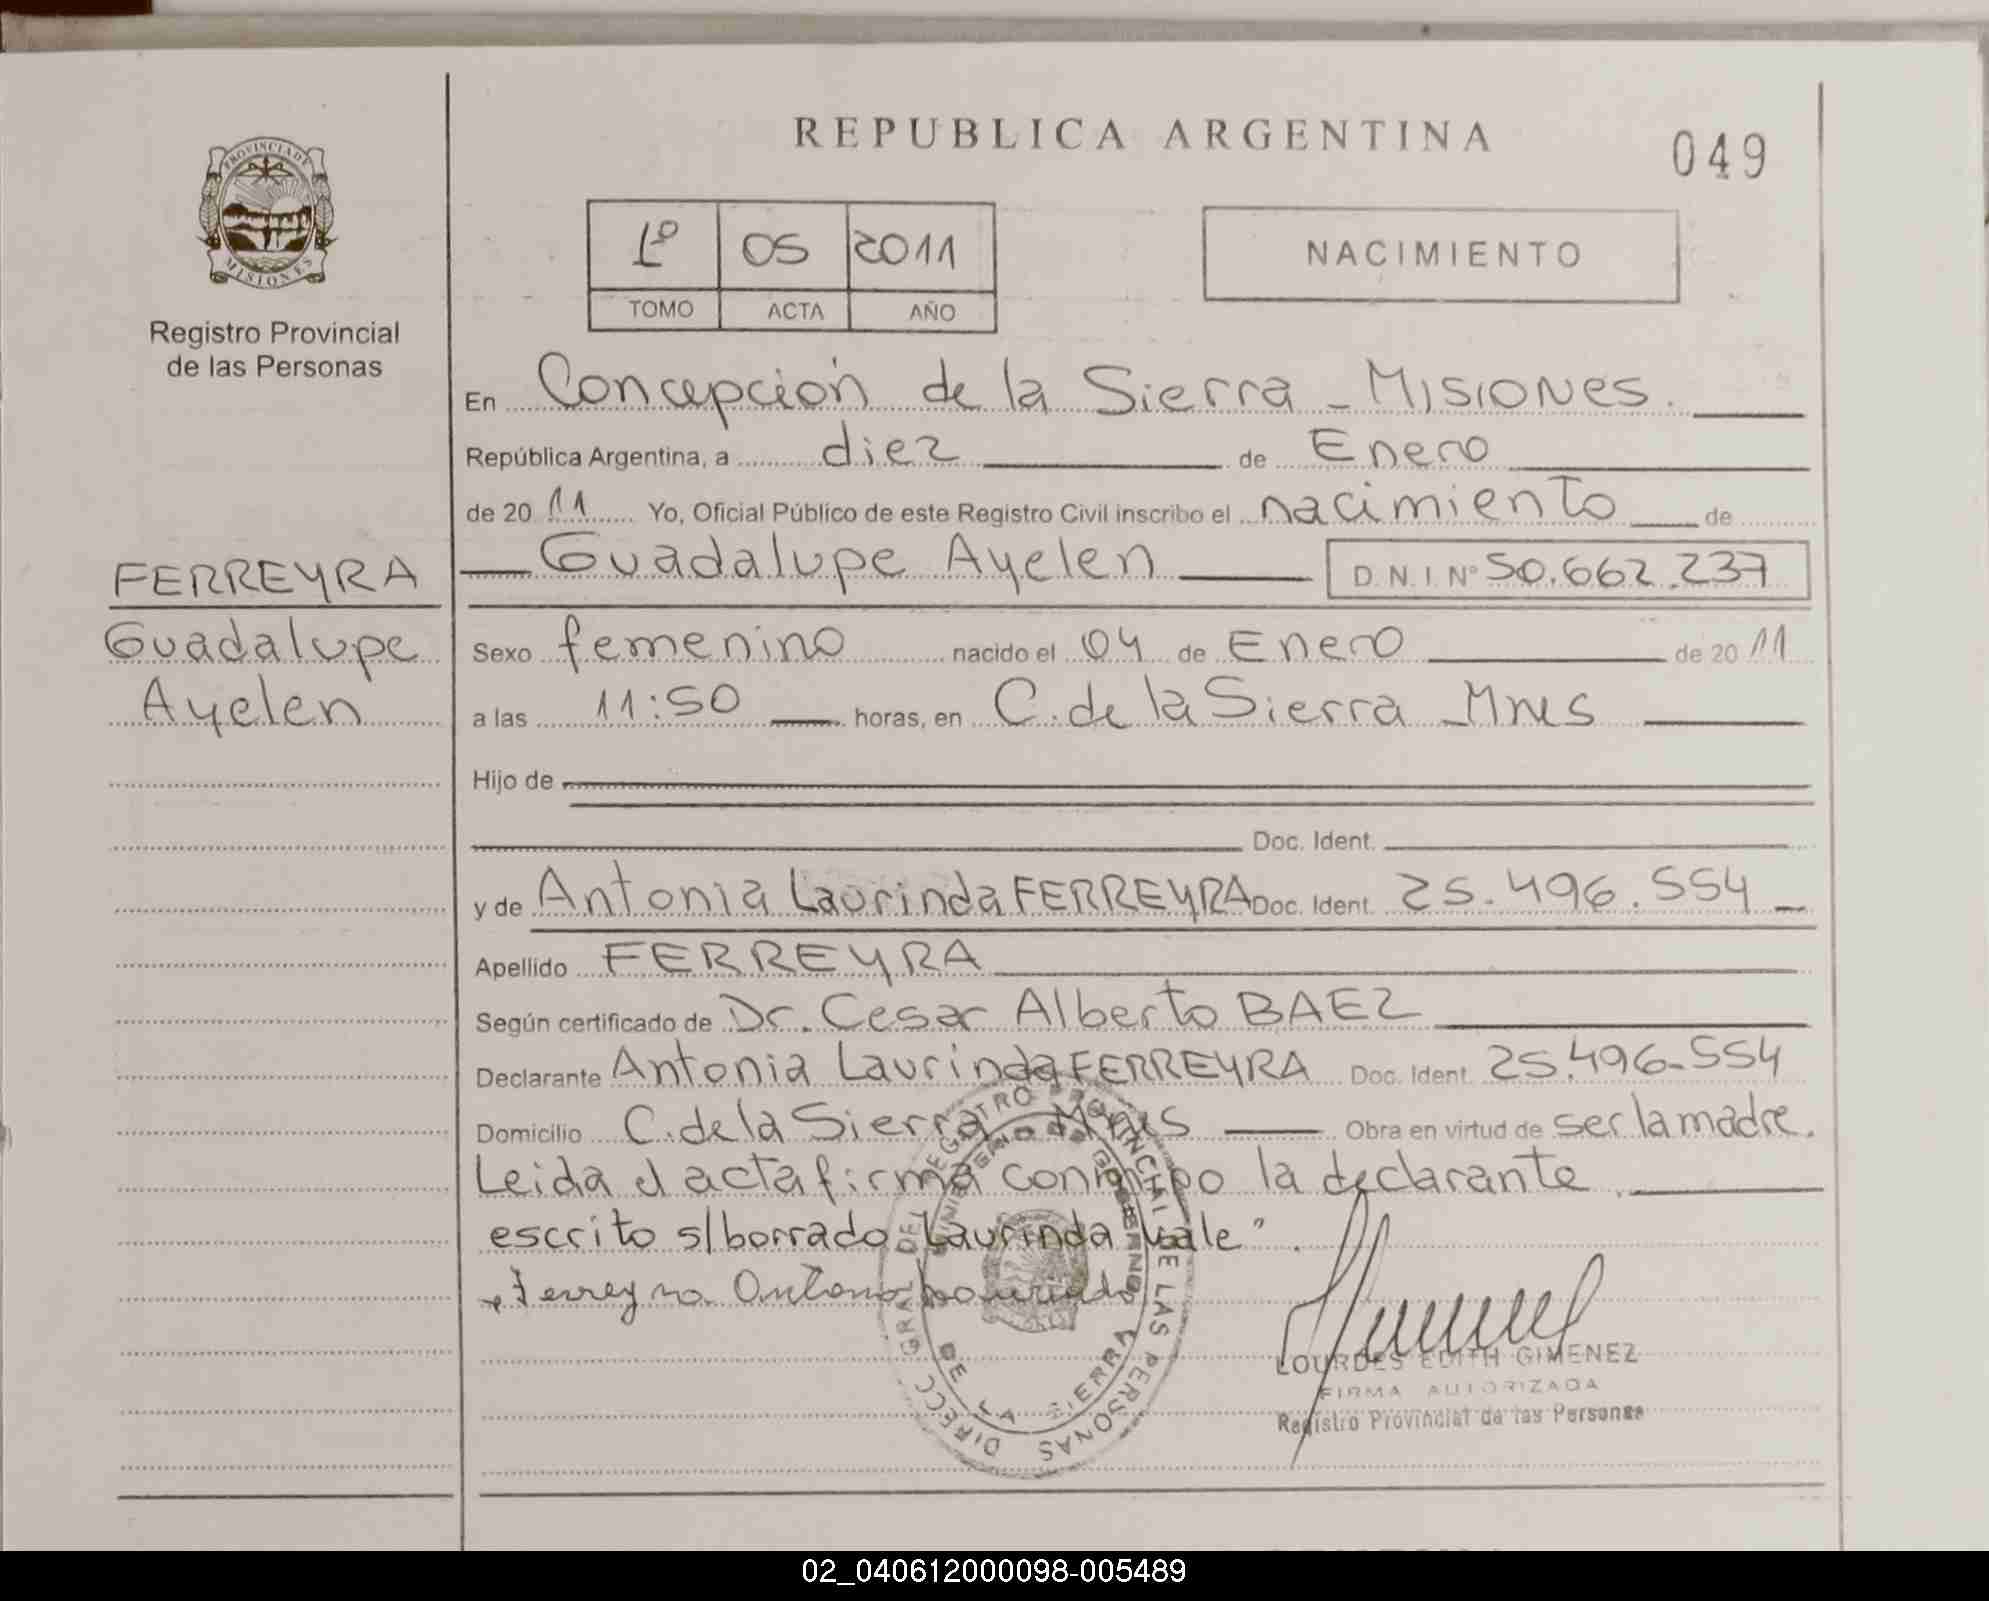 REPUBLICA ARGENTINA
049
PROVINCIA DE
MISIONES
Registro Provincial
de las Personas
1º 05 2011
TOMO ACTA AÑO
NACIMIENTO
En Concepción de la Sierra - Misiones.
República Argentina, a diez de Enero
de 2011 Yo, Oficial Público de este Registro Civil inscribo el nacimiento de
Guadalupe Ayelen D.N.I. Nº 50.662.237
FERREYRA
Guadalupe
Ayelen
Sexo femenino nacido el 04 de Enero de 2011
a las 11:50 horas, en C. de la Sierra - Mnes
Hijo de
Doc. Ident.
y de Antonia Laurinda FERREYRA Doc. Ident. 25.496.554
Apellido FERREYRA
Según certificado de Dr. Cesar Alberto BAEZ
Declarante Antonia Laurinda FERREYRA Doc. Ident. 25.496.554
Domicilio C. de la Sierra Mnes Obra en virtud de ser la madre.
Leida el acta firma conmigo la declarante
escrito s/borrado Laurinda vale".
Ferreyra Antonia Laurinda
DIRECC. GRAL DEL REGISTRO PROVINCIAL DE LAS PERSONAS
DE LA SIERRA
LOURDES EDITH GIMENEZ
FIRMA AUTORIZADA
Registro Provincial de las Personas
02_040612000098-005489